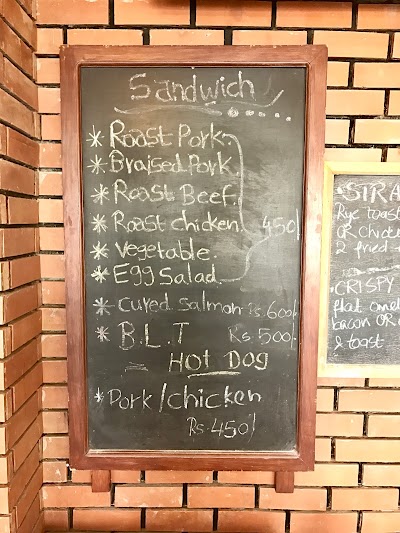 Sandwich
* Roast Pork.
* Braised Pork.
* Roast Beef.
* Roast chicken. 450/
* Vegetable.
* Egg Salad.
* Cured Salmon Rs.600/-
* B.L.T Rs.500/-
Hot Dog
* Pork/chicken
Rs.450/
STRA
Rye toast
OR Chicke
2 fried
CRISPY
flat omel
bacon OR
& toast